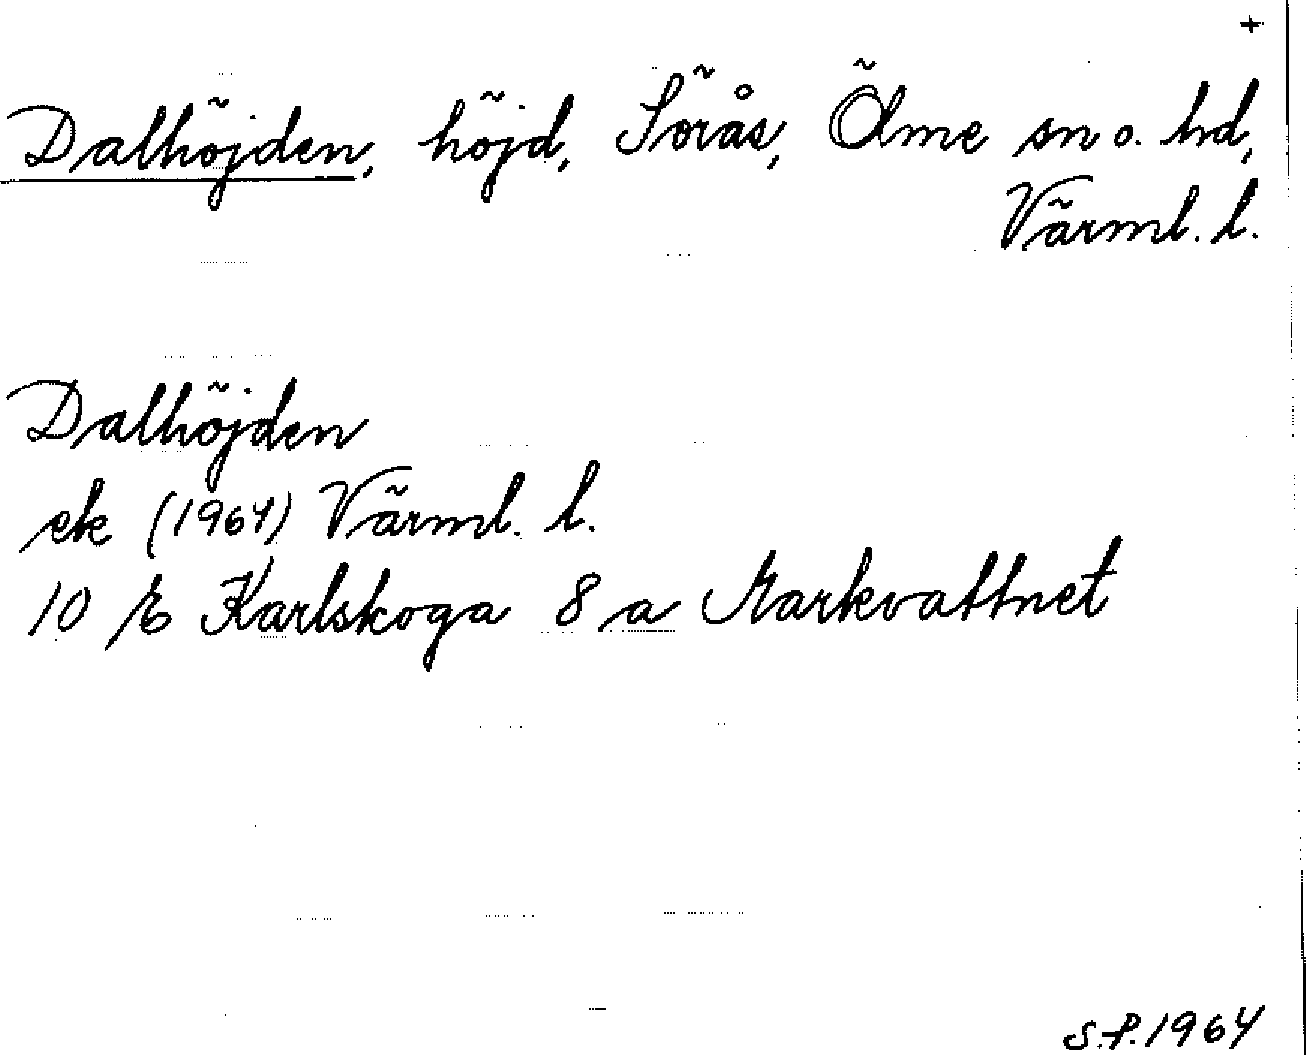 +
Dalhöjden, höjd, Sörås, Ölme sn o. hd,
Värml. l.
Dalhöjden
ek (1964) Värml. l.
10 E Karlskoga 8 a Markvattnet
S.P. 1964